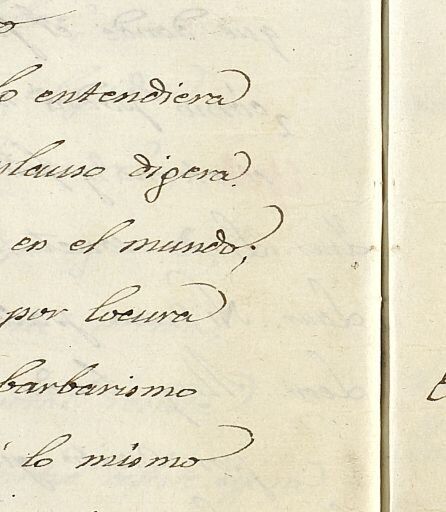 o entendiera
plauso digera
en el mundo;
por locura
barbarismo
lo mismo